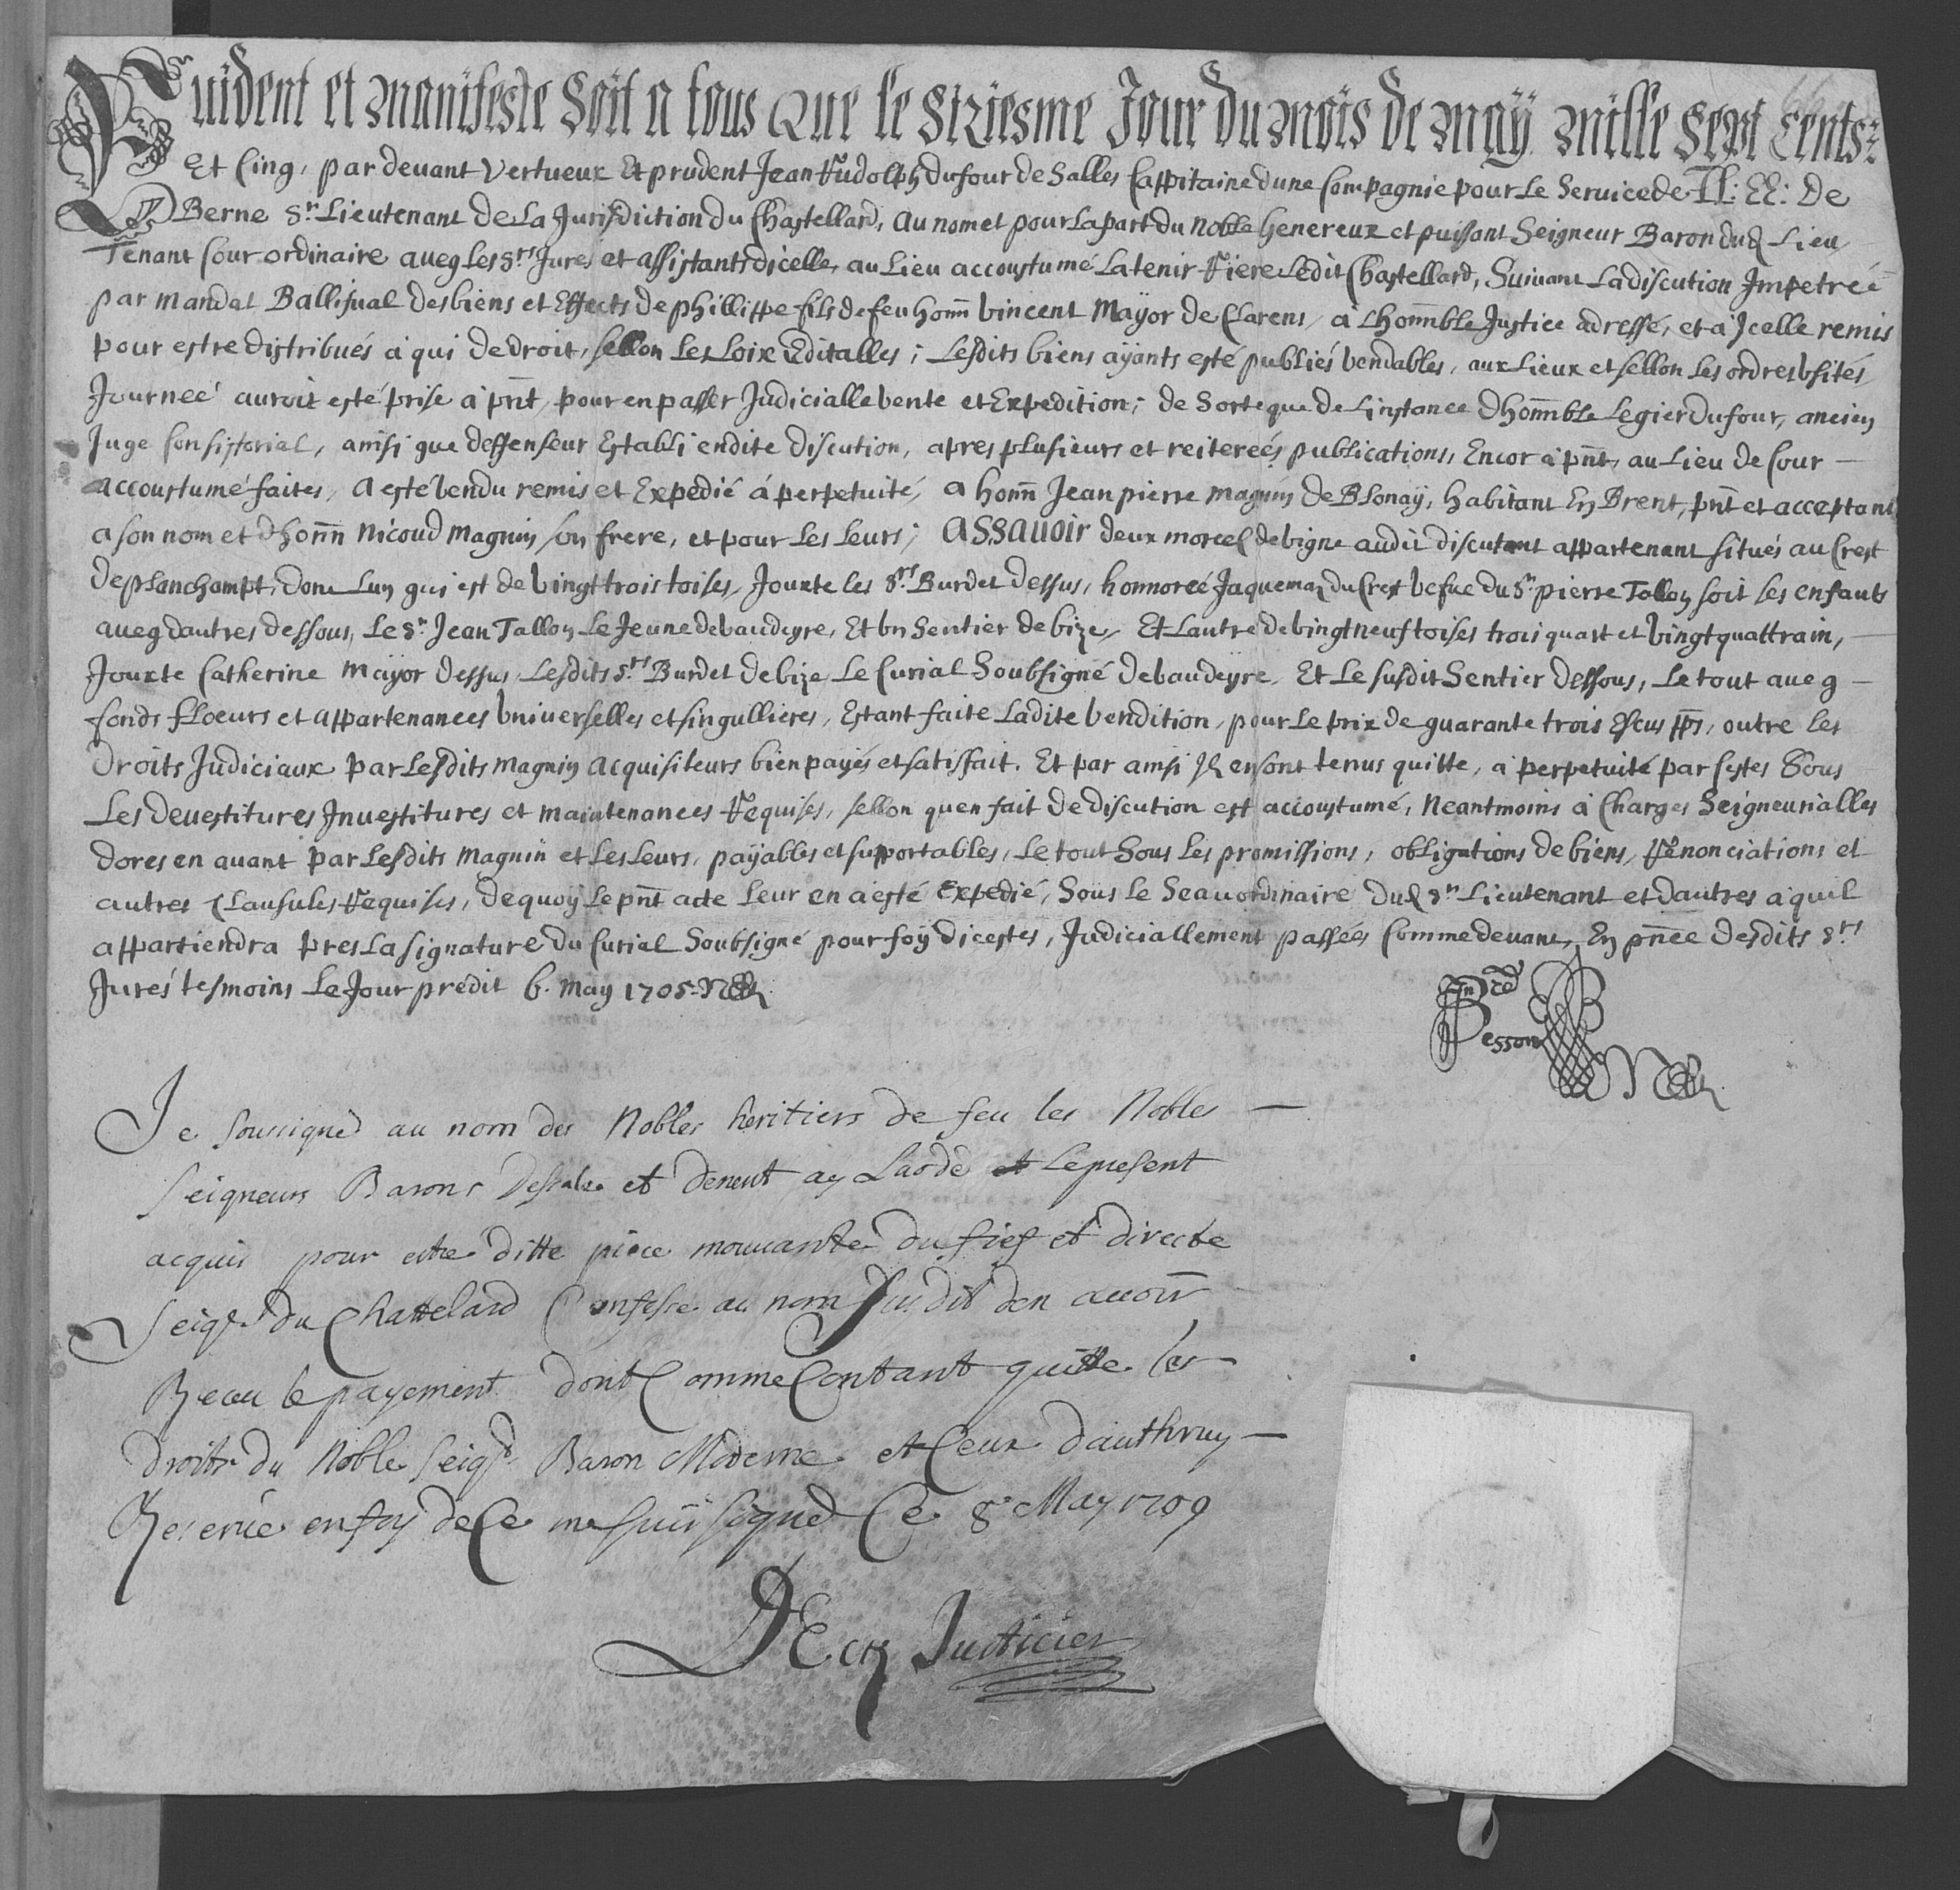 Euident et Manifeste Soit a tous Que le Sixiesme Jour du Mois de May Mille Sept Cents
Et Cinq, par devant Vertueux Et prudent Jean Rudolph dufour de Salles Cappitaine dune Compagnie pour Le Service de LL: EE: De
Berne Sr. Lieutenant de La Jurisdiction du Chastellard, Au nom et pour La part du Noble Genereux et puissant Seigneur Baron dud. Lieu,
Tenant Cour ordinaire aueq les Srs. Jurés et assistants dicelle, au Lieu accoustumé La tenir Riere Ledit Chastellard, Suivant La discution Impetreé
par mandat Ballifual des biens et Effects de phillippe fils de feu honn. Vincent Mayor de Clarens, à Lhonnble Justice adressé, et à Jcelle remis
pour estre distribués à qui de droit, sellon Les Loix Editalles; Lesdits biens aÿants esté publiés Vendables, aux Lieux et sellon Les ordres Vsités,
Journeé auroit esté prise à pnt, pour en passer Judicialle Vente et Expedition; de Sorte que de Linstance Dhonnble Legier dufour, ancien
Juge Consistorial, ainsi que deffenseur Establi endite discution, apres plusieurs et reitereés publications, Encor à pnt, au Lieu de Cour —
accoustumé faites, A esté Vendu remis et Expedié à perpetuité, a honn. Jean pierre Magnin de Blonaÿ, habitant En Brent, pnt et acceptant
a son nom et dhonn. Nicoud Magnin son frere, et pour Les Leurs; ASSauoir deux morcel. de Vigne audit discutant appartenant situés au Crest
de planchampt, dont Lun qui est de Vingt trois toises, Jouxte les Srs. Burdet dessus, honnoreé Jaquemaz du Crest Vefue du Sr. pierre Tallon soit ses enfants
aueq dautres dessous, Le Sr. Jean Tallon Le Jeune de Vaudeyre, Et Vn Sentier de bize, Et Lautre de Vingt neuf toises trois quart et Vingt quattrain, —
Jouxte Catherine Mayor dessus, Lesdits Srs. Burdet de bize Le Curial Soubsigné de Vaudeyre, Et Le susdit Sentier Dessous, Le tout aueq —
fonds floeurs et appartenances Vniverselles et singullieres, Estant faite Ladite Vendition, pour Le prix de quarante trois Escus pps, outre les
Droits Judiciaux par Lesdits Magnin acquisiteurs bien payés et satisfait. Et par ainsi Jl. en sont tenus quitte, à perpetuité par sestes Sous
Les devestitures Jnvestitures et maintenances Requises, sellon quen fait de discution est accoustumé, Neantmoins à Charges Seigneurialles
dores en auant par Lesdits Magnin et Les Leurs, paÿables et supportables, Le tout Sous Les promissions, obligations de biens, Renonciations et
autres Clausules Requises, dequoÿ Le pnt acte Leur en a esté Expedié, Sous Le Seau ordinaire Dud. Sr. Lieutenant et dautres à quil
appartiendra pres La signature du Curial Soubsigné pour foÿ dicestes, Judiciallement passées Comme devant, En pnce Desdits Srs.
Jurés tesmoins Le Jour predit 6. May 1705.
Pesson
Je soussigné au nom des Nobles heritiers de feu les Nobles —
Seigneurs Barons et ay Laodé Le present
acquis pour estre ditte piece mouvante du fief et directe
Seigl. du Chattelard Confesse au nom Susdit den avoir
Receu le payement dont Comme Contant quitte les
droits du Noble Seigr. Baron Moderne et Ceux dauthruy —
Reservé en foy de Ce me suis signé Ce 8e May 1709
Justicier